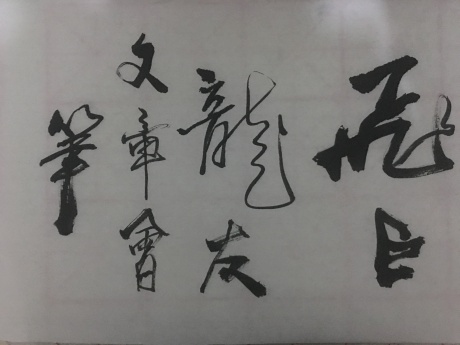 飛白
龍友
文章會
筆